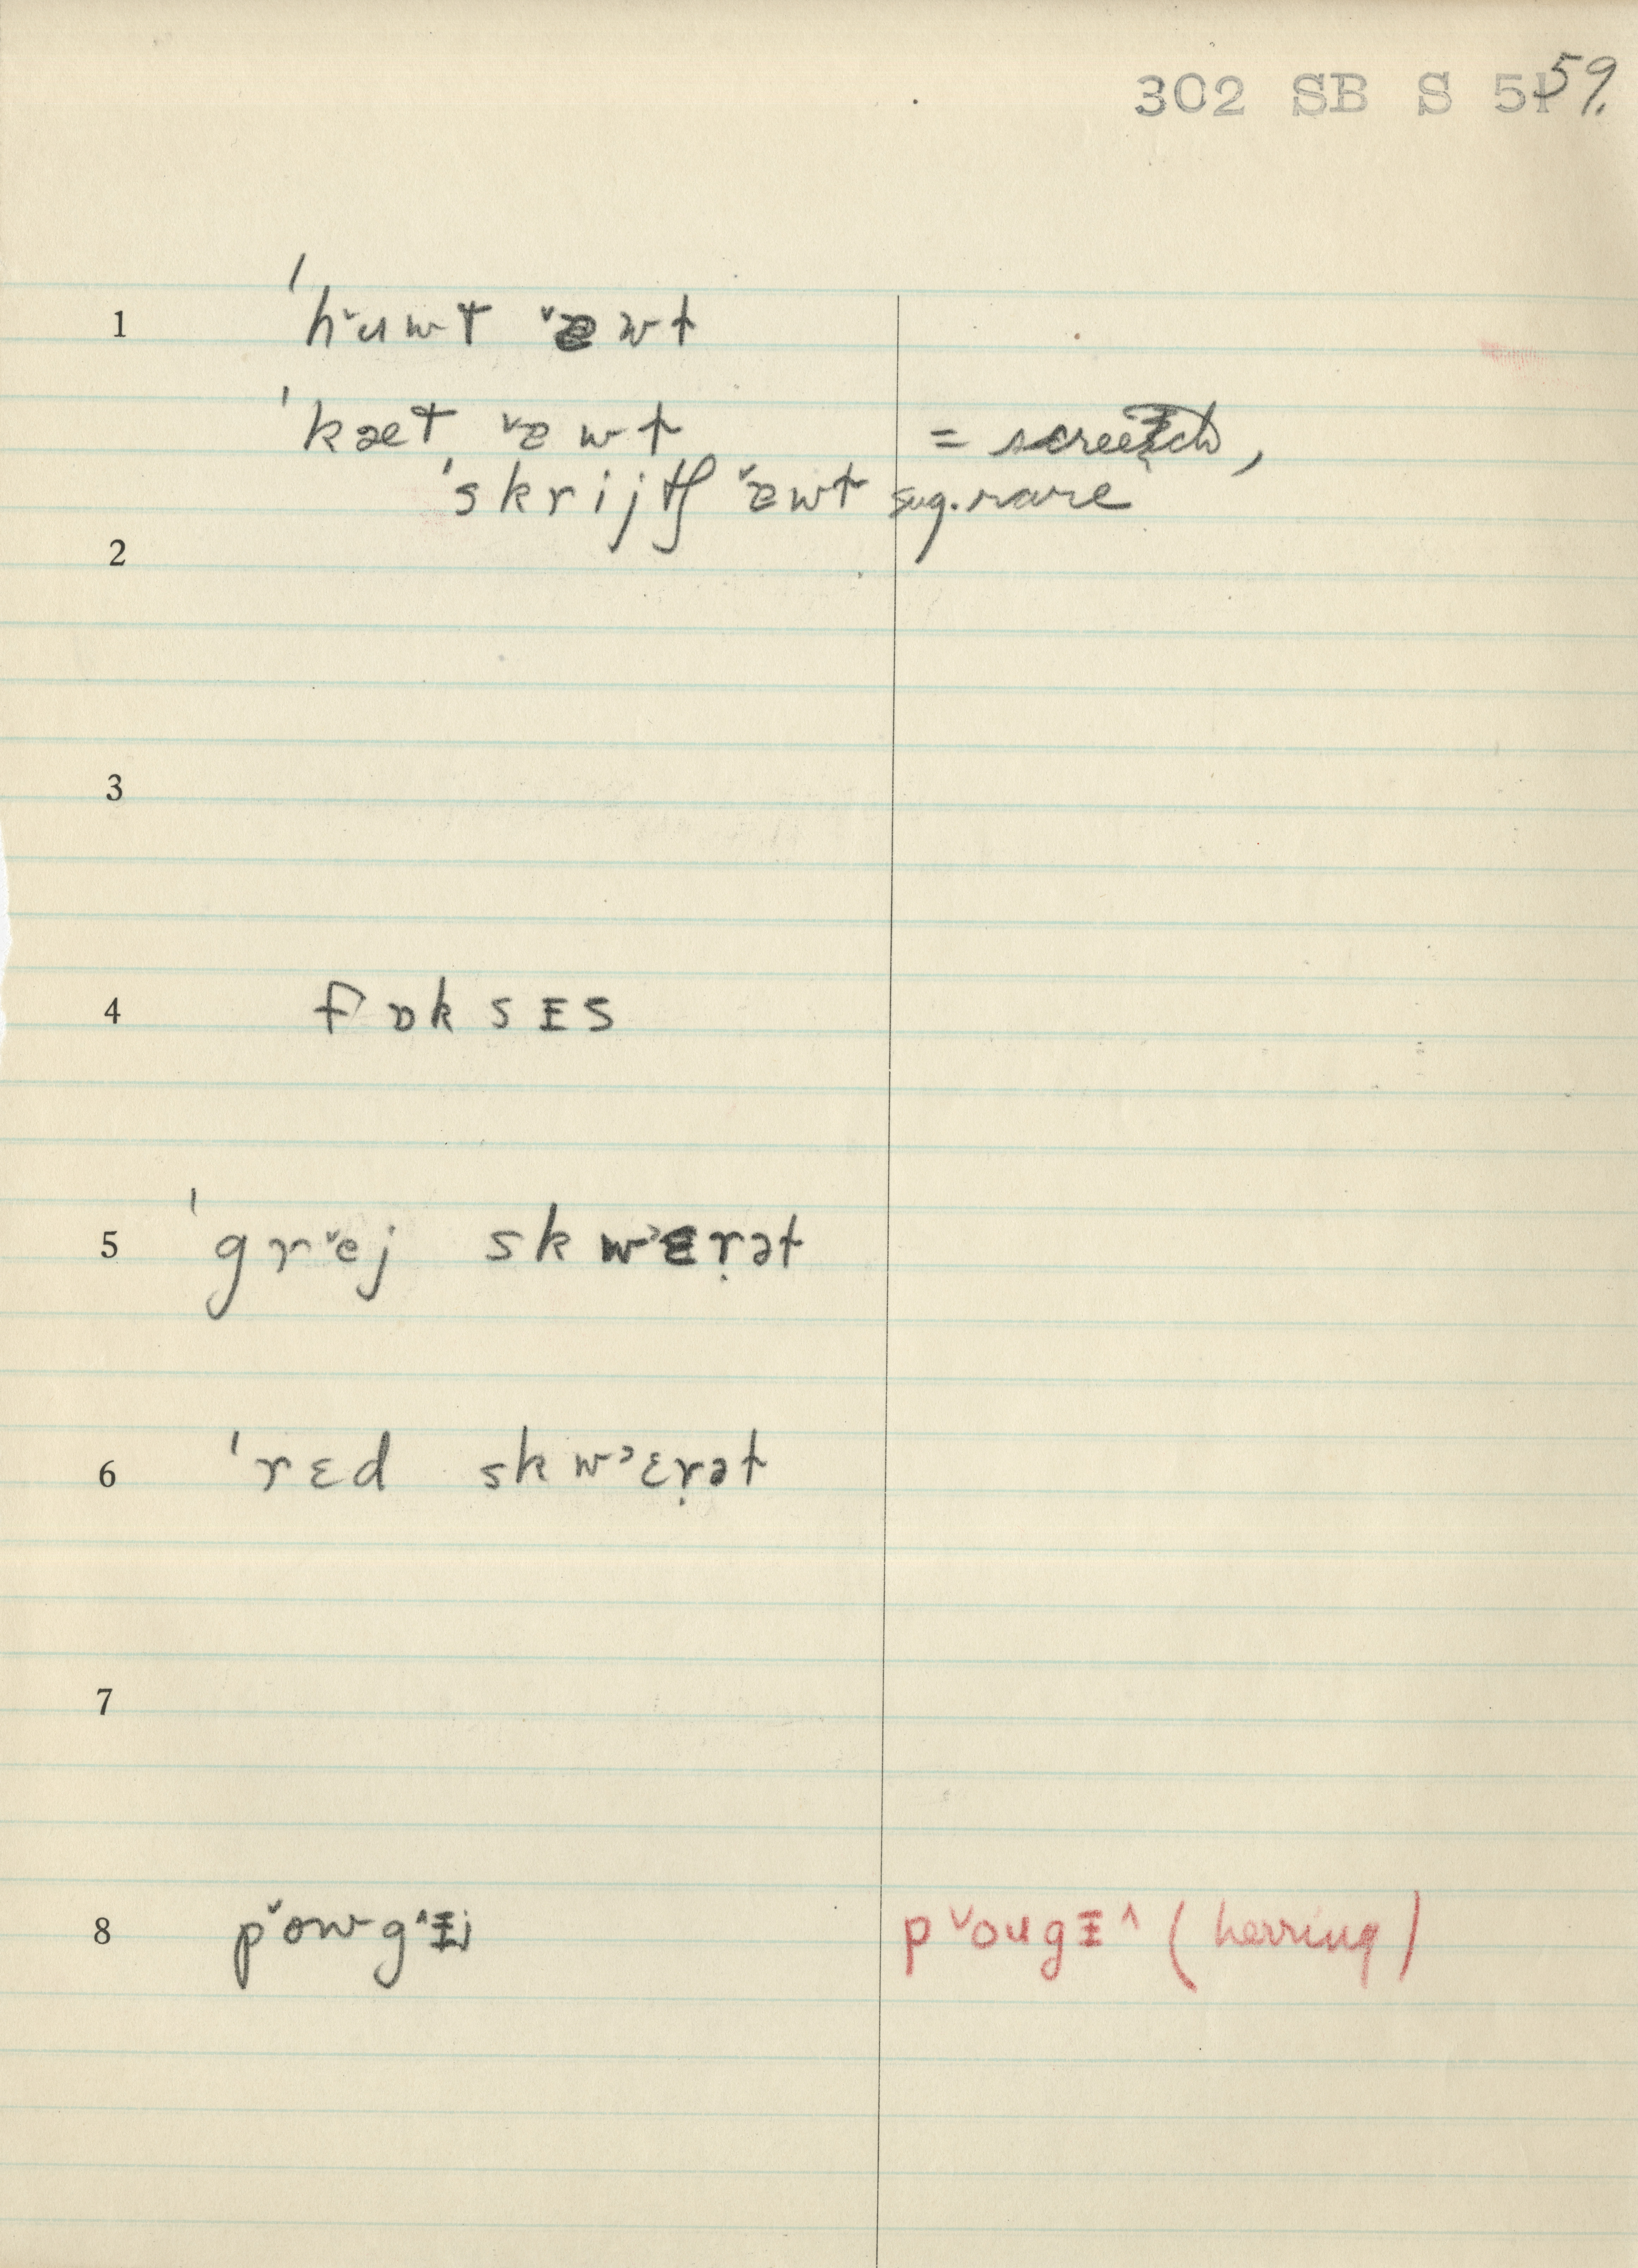 302 SB S 51 59.
1 ˈh˅uwt ˅ɐwƚ
ˈkæt ˅ɐwƚ = screech,
ˈskrijtʃ ˅ɐwƚ sug. rare
2
3
4 fɒksᵻs
5 ˈgr˅ej skw˃ɛṛəƚ
6 ˈrɛd skw˃ɛṛəƚ
7
8 p˅owg˄ᵻj p˅ougᵻ˄ (herring)